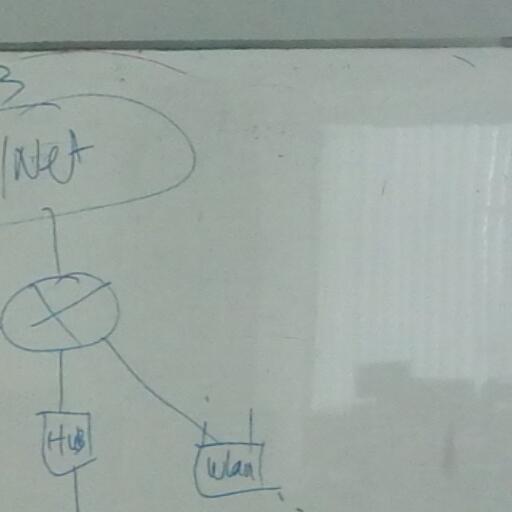 3
INet
HUB
Wlan